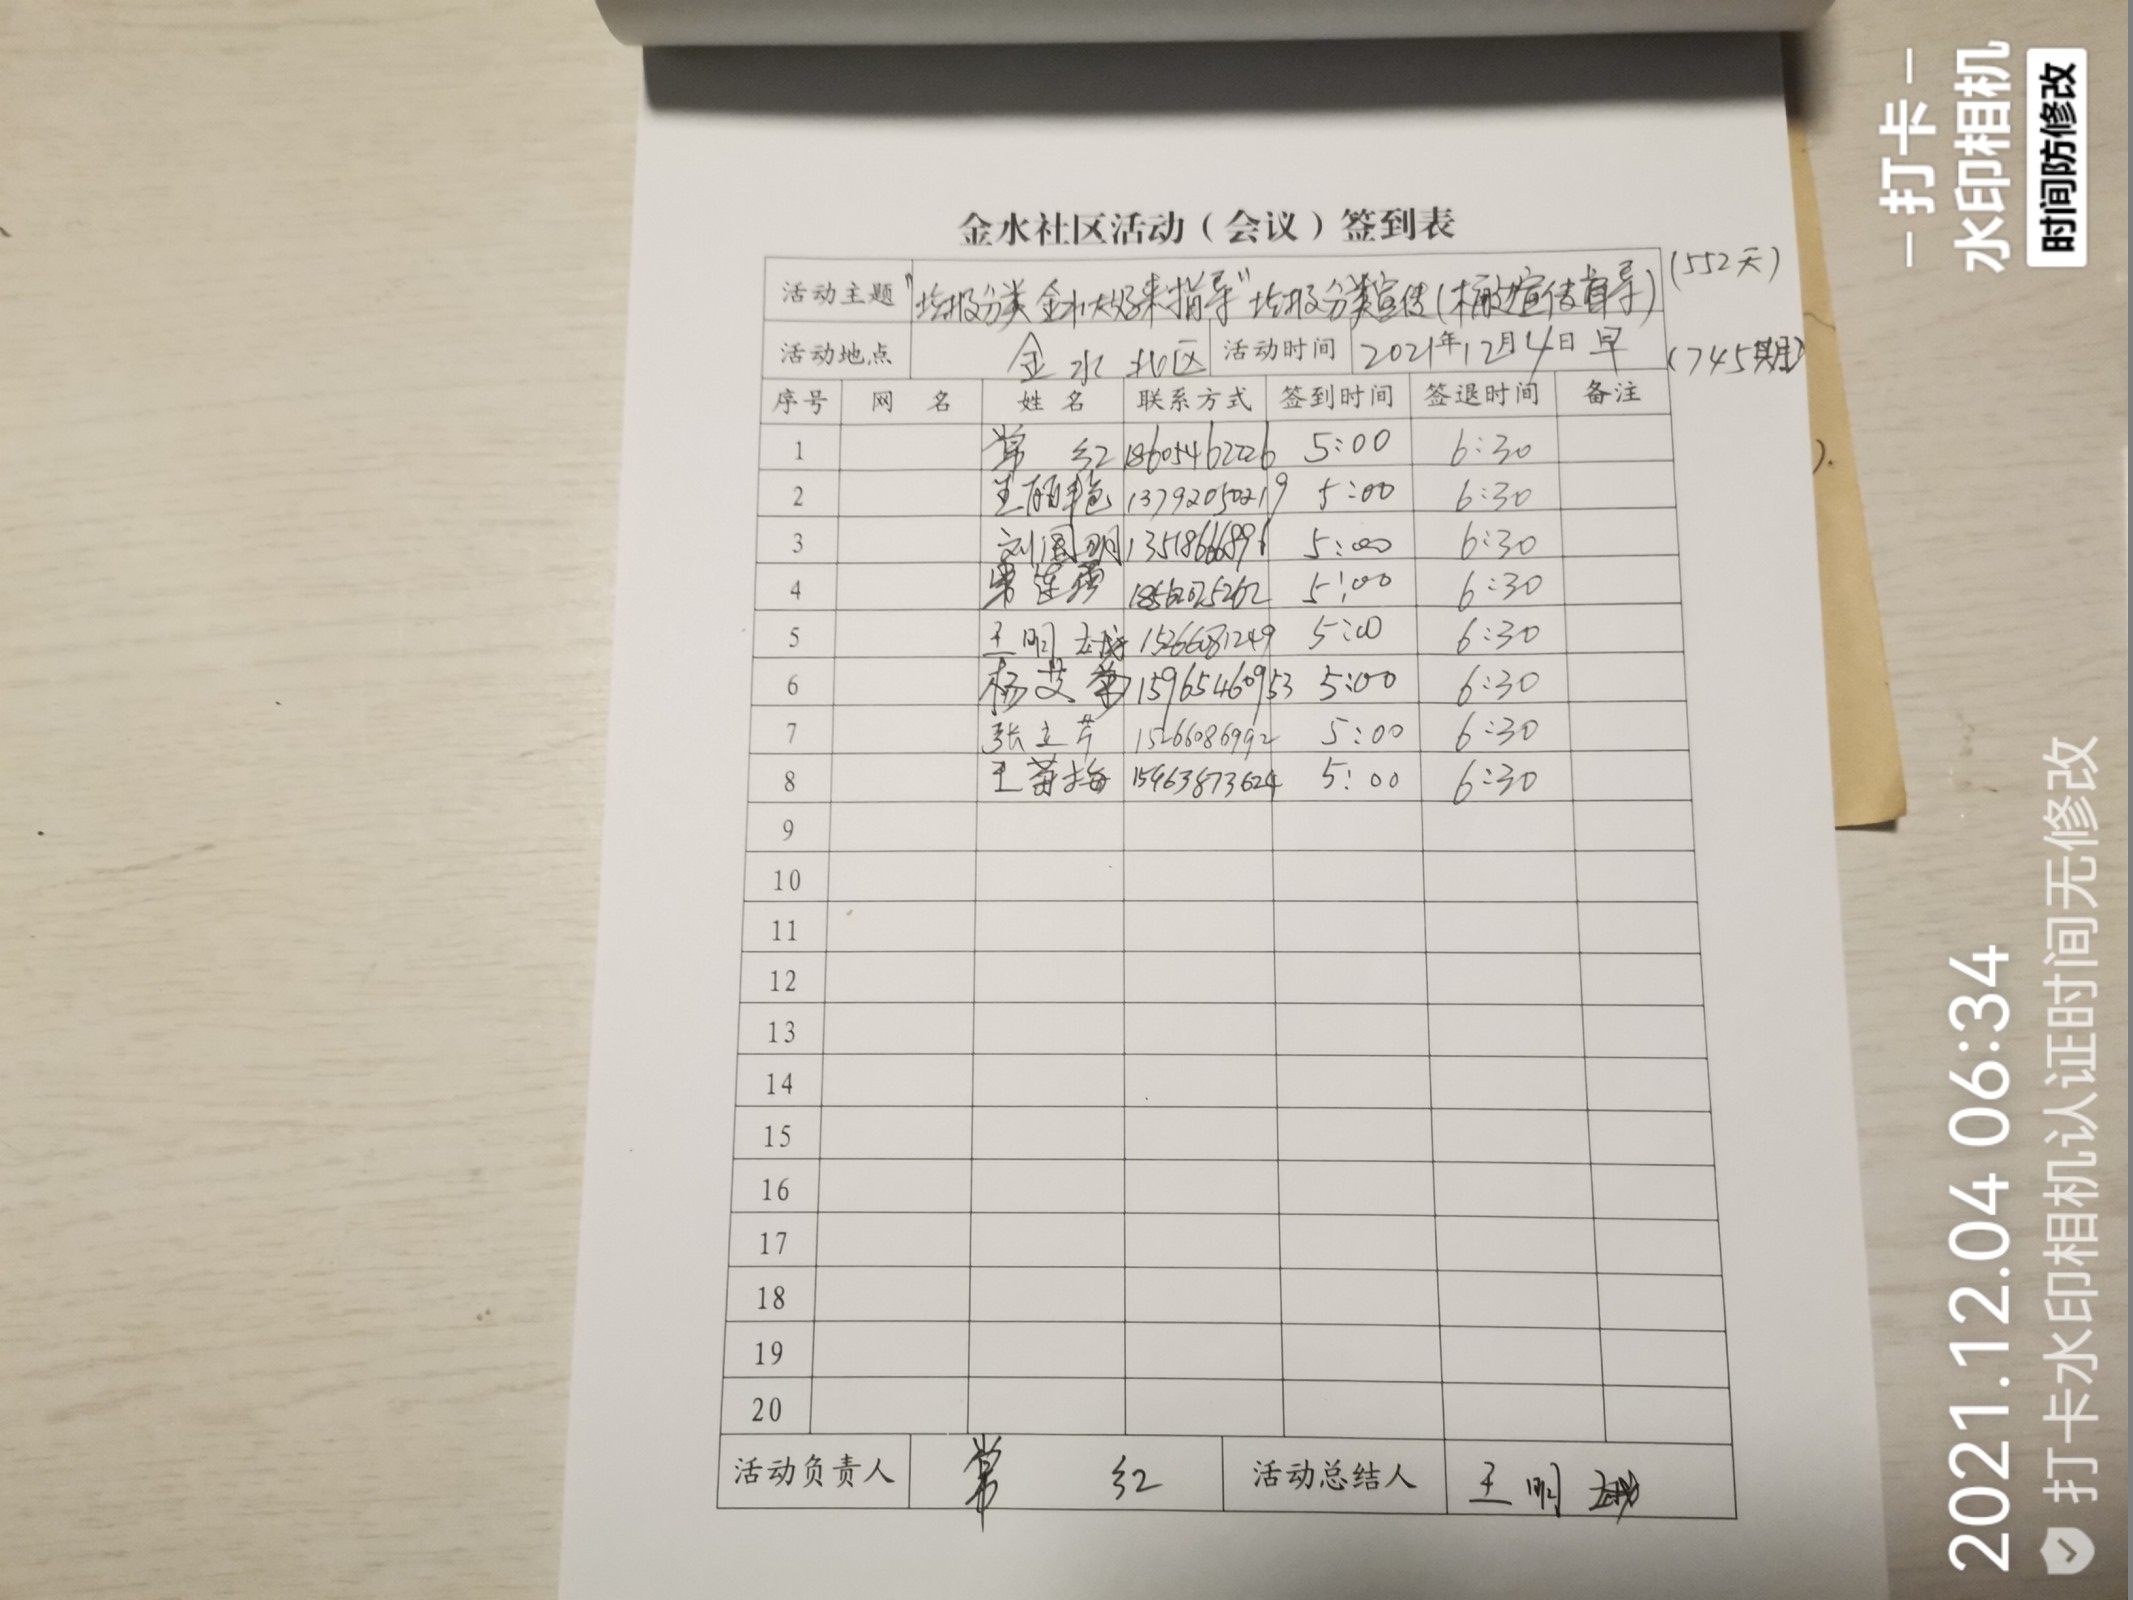 金水社区活动（会议）签到表
活动主题 "垃圾分类 金水大姐来指导"垃圾分类宣传(桶边宣传督导) (552天)
活动地点 金水北区 活动时间 2021年12月4日早 (745期)
序号 网 名 姓 名 联系方式 签到时间 签退时间 备注
1 常 红 18605462226 5:00 6:30
2 13792050219 5:00 6:30
3 刘国明 5:00 6:30
4 5:00 6:30
5 王明 15266081249 5:00 6:30
6 杨艾菊 15965460953 5:00 6:30
7 张立芹 15266086992 5:00 6:30
8 王菊梅 15963873624 5:00 6:30
9
10
11
12
13
14
15
16
17
18
19
20
活动负责人 常 红 活动总结人 王明
打卡
水印相机
时间防修改
2021.12.04 06:34
打卡水印相机认证时间无修改